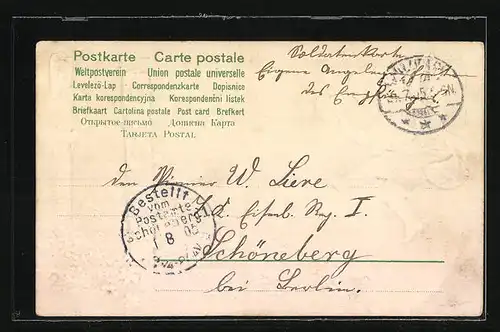 Postkarte Carte postale
Weltpostverein Union postale universelle
Levelező-Lap Correspondenzkarte Dopisnice
Karta korespondencyjna Korespondenční lístek
Briefkaart Cartolina postale Post card Brefkort
Открытое-письмо Дописна Карта
TARJETA POSTAL
Soldatenkarte
Eigene Angelegenheiten
des Empfängers
den Pionier W. Liere
Eisenb. Reg. I.
Schöneberg
bei Berlin.
Bestellt
vom
Postamte
Schöneberg
1 8 05